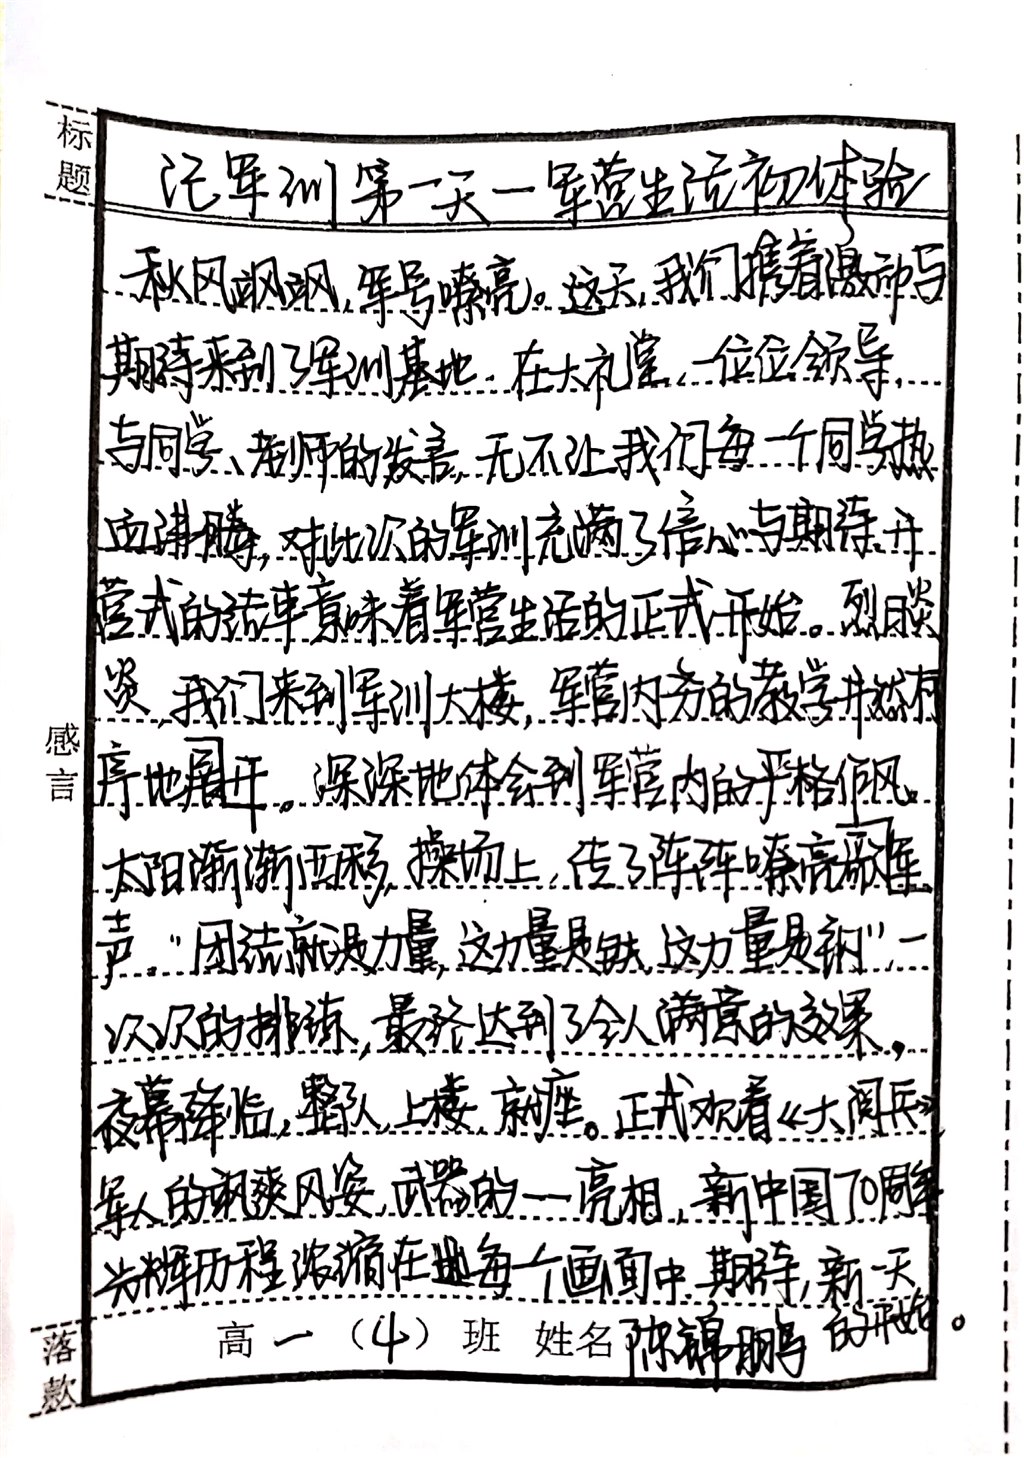 标题
记军训第一天一军营生活初体验
秋风飒飒,军号嘹亮。这天,我们携着激动与
期待来到了军训基地.在大礼堂,一位位领导,
与同学、老师的发言,无不让我们每一个同学热
血沸腾,对此次的军训充满了信心与期待.开
营式的结束意味着军营生活的正式开始。烈日炎
炎,我们来到军训大楼,军营内务的教学井然有
感言
序地展开。深深地体会到军营内的严格作风.
太阳渐渐西移,操场上,传了阵阵嘹亮歌军
声."团结就是力量,这力量是铁,这力量是钢",一
次次的排练,最终达到了令人满意的效果.
夜幕降临,整队,上楼,就座。正式观看《大阅兵》
军人的飒爽风姿,武器的一一亮相,新中国70周年
光辉历程浓缩在每个画面中.期待,新一天
的开始。
落款
高一(4)班 姓名陈锦鹏